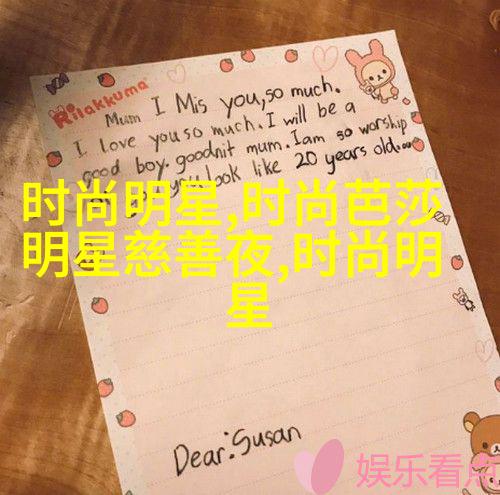 Rilakkuma
Mum I Mis you, so much.
I love you so much. I will be a
good boy. goodnit mum. I am so worship
you look like 20 years old.
时尚明星,时尚芭莎
明星慈善夜,时尚明
星
Dear: Susan
娱乐看点